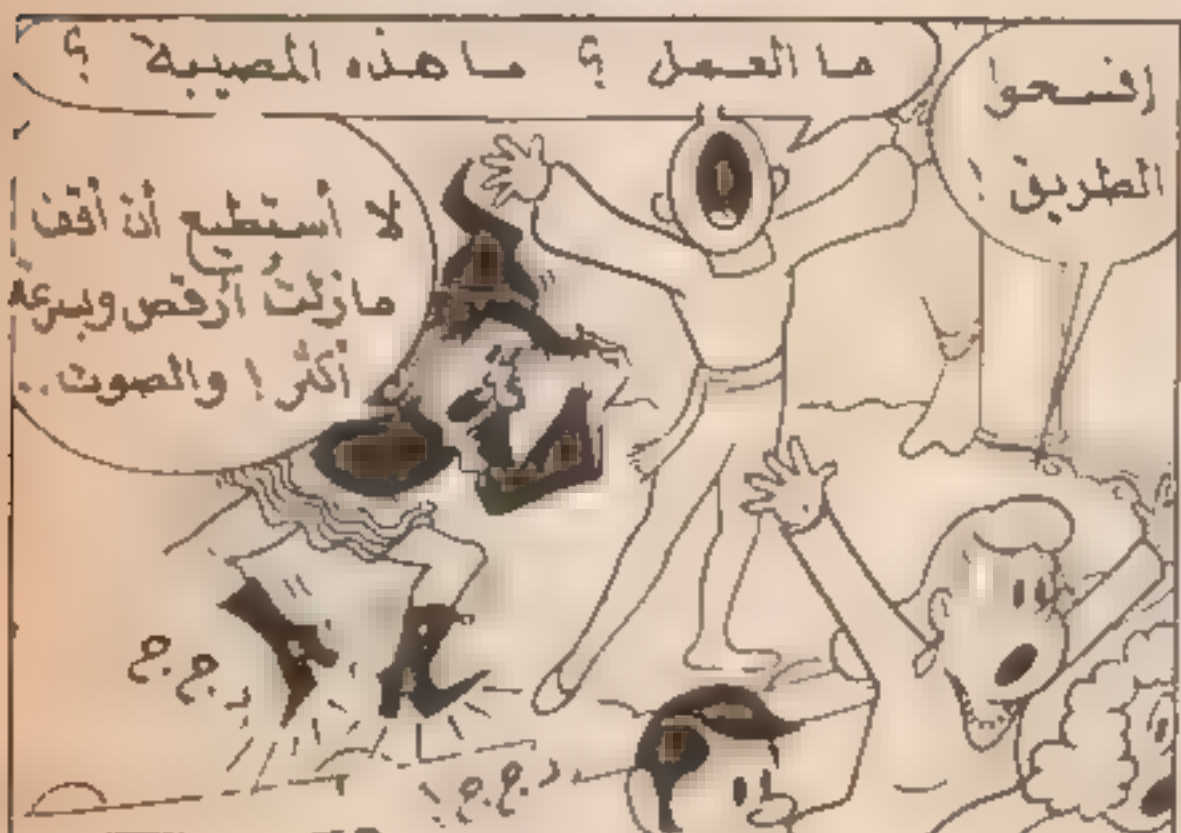 إفسحوا
الطريق !
ما العمل ؟ ما هذه المصيبة ؟
لا أستطيع أن أقف
مازلت أرقص وبسرعة
أكثر ! والصوت..
د.م.م
د.م.م.